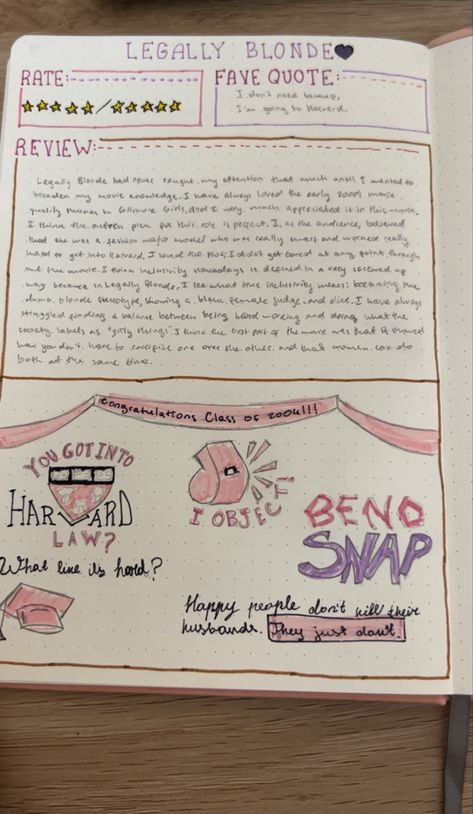 LEGALLY BLONDE
RATE:
FAVE QUOTE:
I don't need
I'm going to Harvard.
REVIEW:
Legally Blonde had never caught my attention that much until I wanted to
broaden my movie knowledge. I have always loved the early 2000s movie
quality thanks to Gilmore Girls, and I very much appreciated it in this movie.
I think the actress pick for this role is perfect. I, as the audience, believed
that she was a fashion major model who was really smart and worked really
hard to get into Harvard. I loved the plot, I didn't get bored at any point through
out the movie. I think inclusivity nowadays is depicted in a very screwed up
way because in Legally Blonde, I see what true inclusivity means: breaking the
dumb blonde stereotype, showing a black female judge, and I have always
struggled finding a balance between being hard working and doing what the
society labels as "girly things". I think the best part of the movie was that it showed
how you don't have to sacrifice one over the other and that women can do
both at the same time.
Congratulations Class of 2004!!!
YOU GOT INTO
HARVARD
LAW?
What like its hard?
I OBJECT!
BEND
SNAP
Happy people don't kill their
husbands. They just don't.